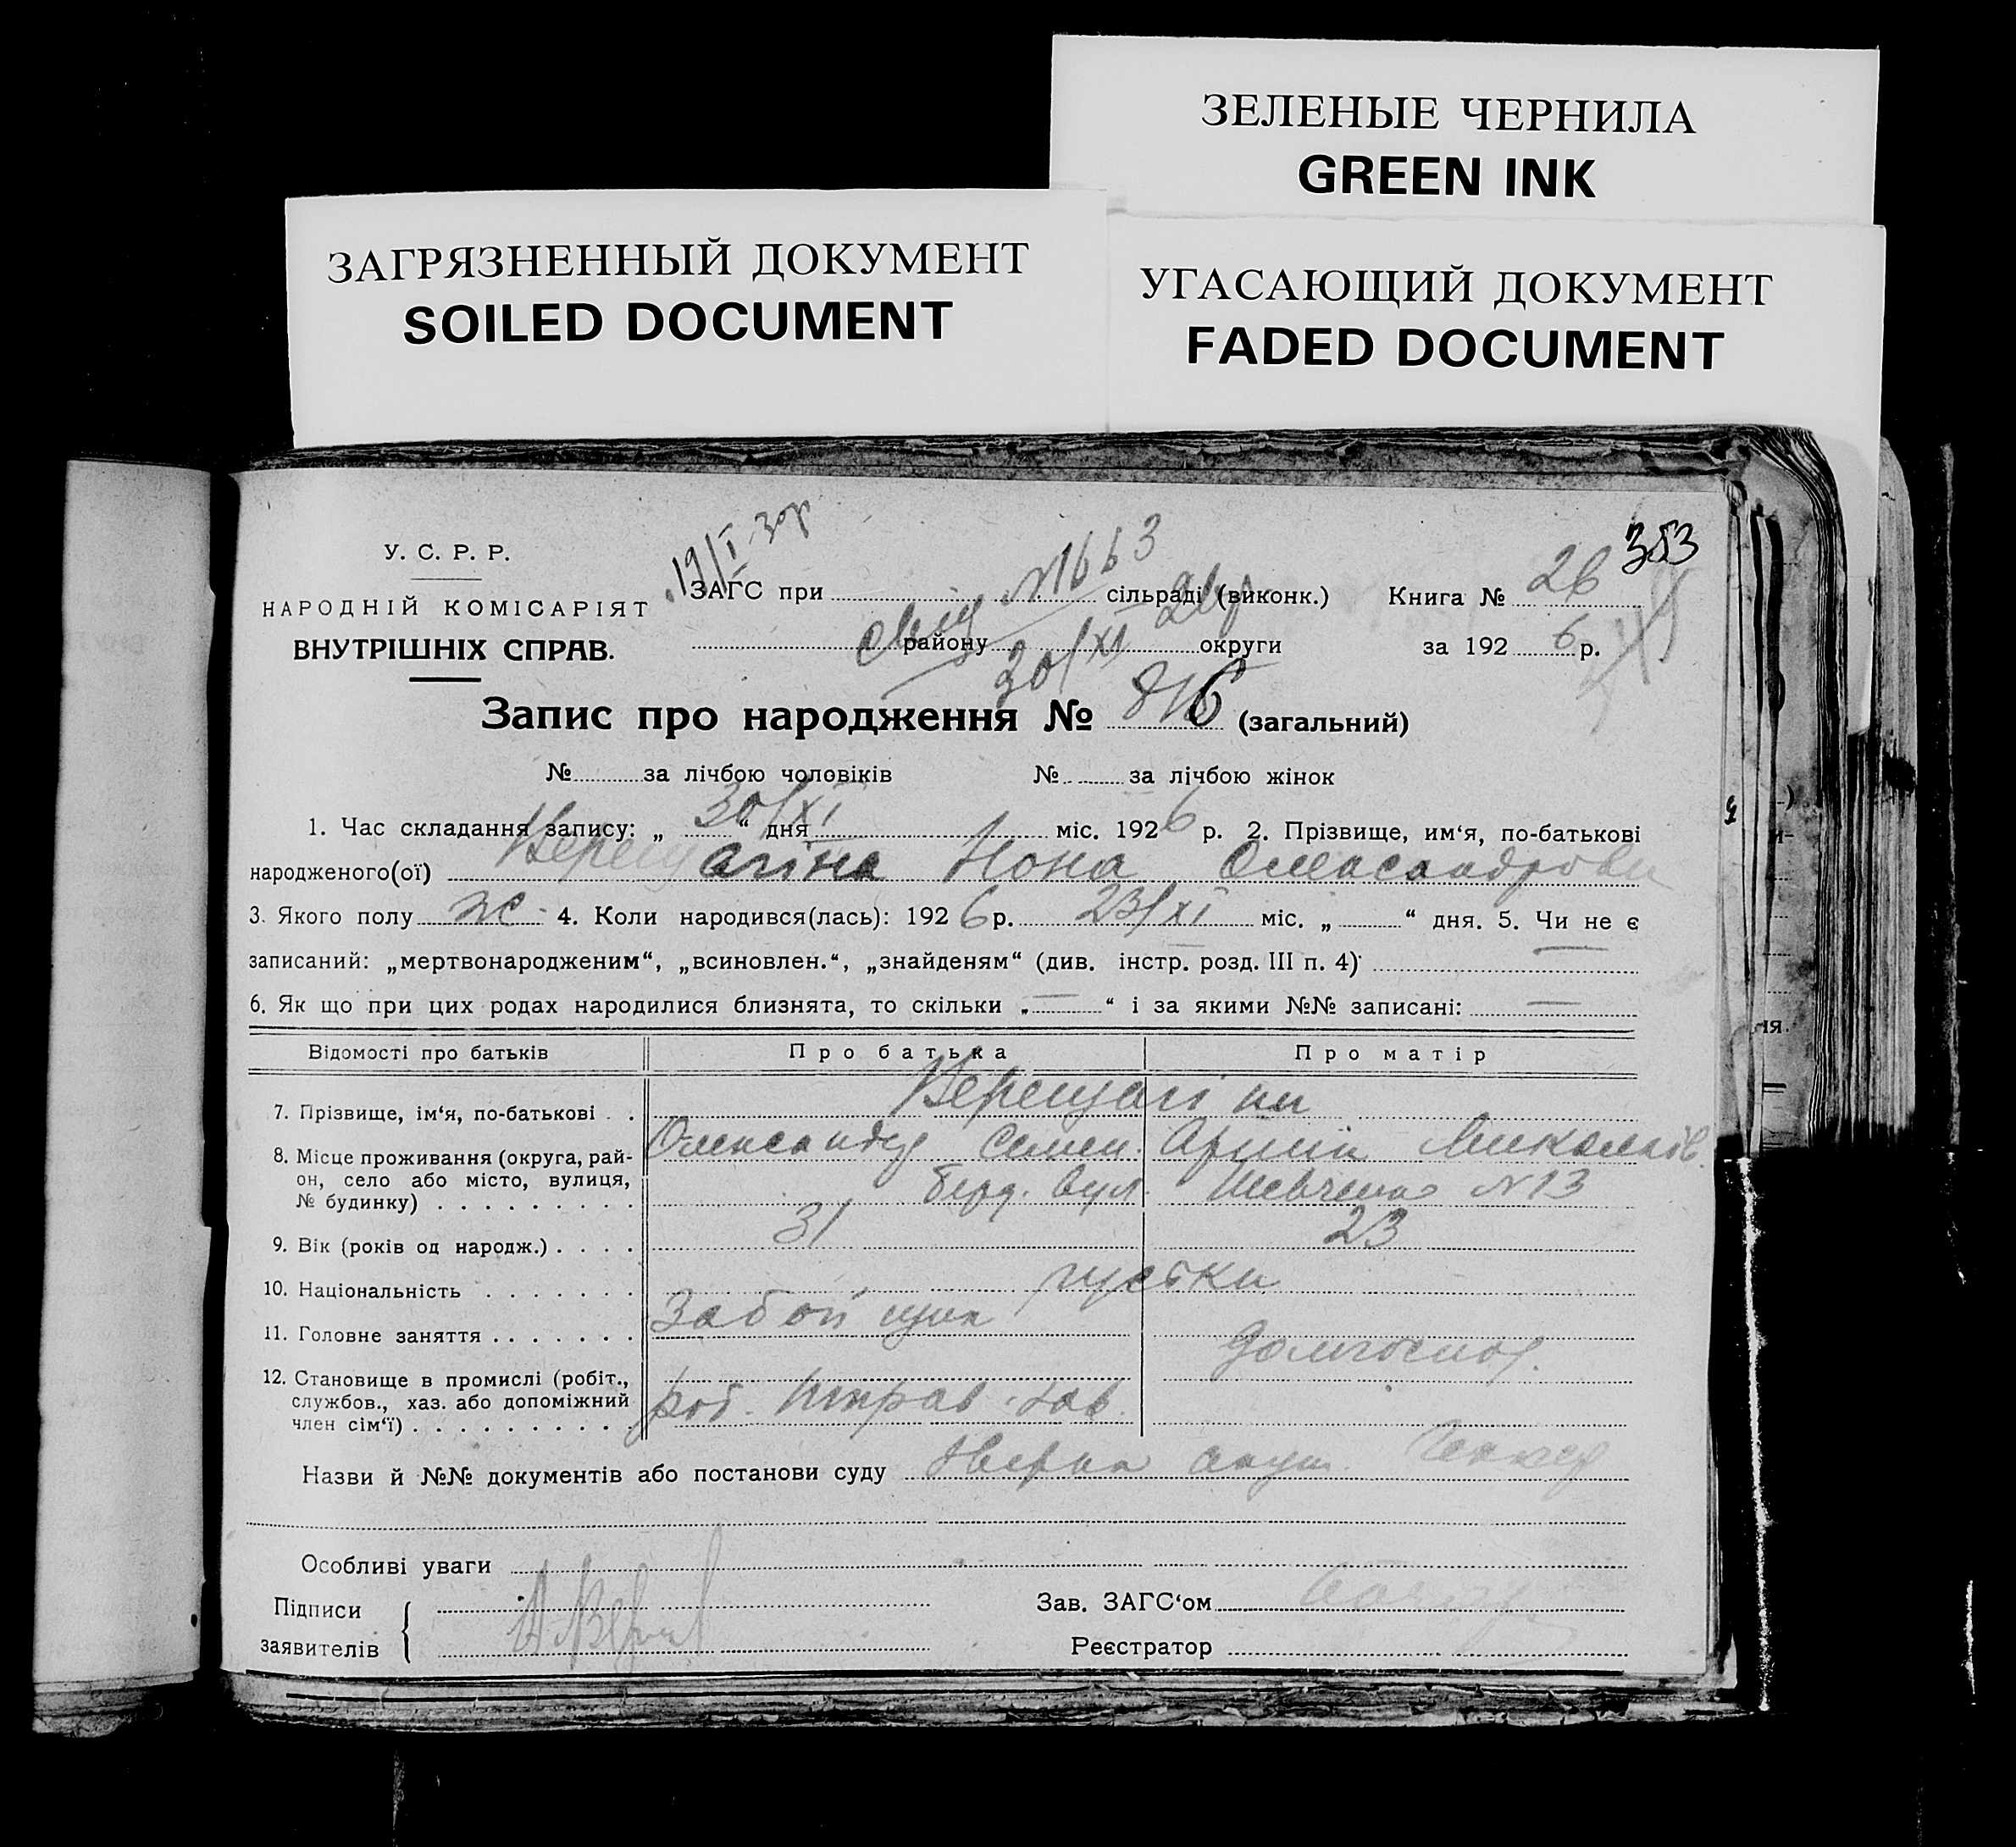 ЗЕЛЕНЫЕ ЧЕРНИЛА
GREEN INK
ЗАГРЯЗНЕННЫЙ ДОКУМЕНТ
SOILED DOCUMENT
УГАСАЮЩИЙ ДОКУМЕНТ
FADED DOCUMENT
353
У. С. Р. Р.
НАРОДНІЙ КОМІСАРІЯТ
ВНУТРІШНІХ СПРАВ.
19/I 30р
№1663
ЗАГС при сільраді (виконк.) Книга № 26
району округи за 1926 р.
30/XI
Запис про народження № 816 (загальний)
№ за лічбою чоловіків № за лічбою жінок
1. Час складання запису: „ 30/XI “ дня міс. 1926 р. 2. Прізвище, им‘я, по-батькові
народженого(ої) Верещагіна Нона Олександровн
3. Якого полу ж 4. Коли народився(лась): 1926 р. 23/XI міс. „ “ дня. 5. Чи не є
записаний: „мертвонародженим“, „всиновлен.“, „знайденям“ (див. інстр. розд. III п. 4) —
6. Як що при цих родах народилися близнята, то скільки „ — “ і за якими №№ записані: —
Відомості про батьків Про батька Про матір
7. Прізвище, ім‘я, по-батькові . . Верещагіни
Олександр Семен. Миколаїв.
8. Місце проживання (округа, рай-
он, село або місто, вулиця,
№ будинку) . . . . . . . . . вул. Шевченко №13
9. Вік (років од народж.) . . . . 31 23
10. Національність . . . . . . .
11. Головне заняття . . . . . . . Забойщик
Домгоспод.
12. Становище в промислі (робіт.,
службов., хаз. або допоміжний
член сім‘ї) . . . . . . . . . . роб.
Назви й №№ документів або постанови суду акуш.
Особливі уваги
Підписи
заявителів
Зав. ЗАГС‘ом
Реєстратор